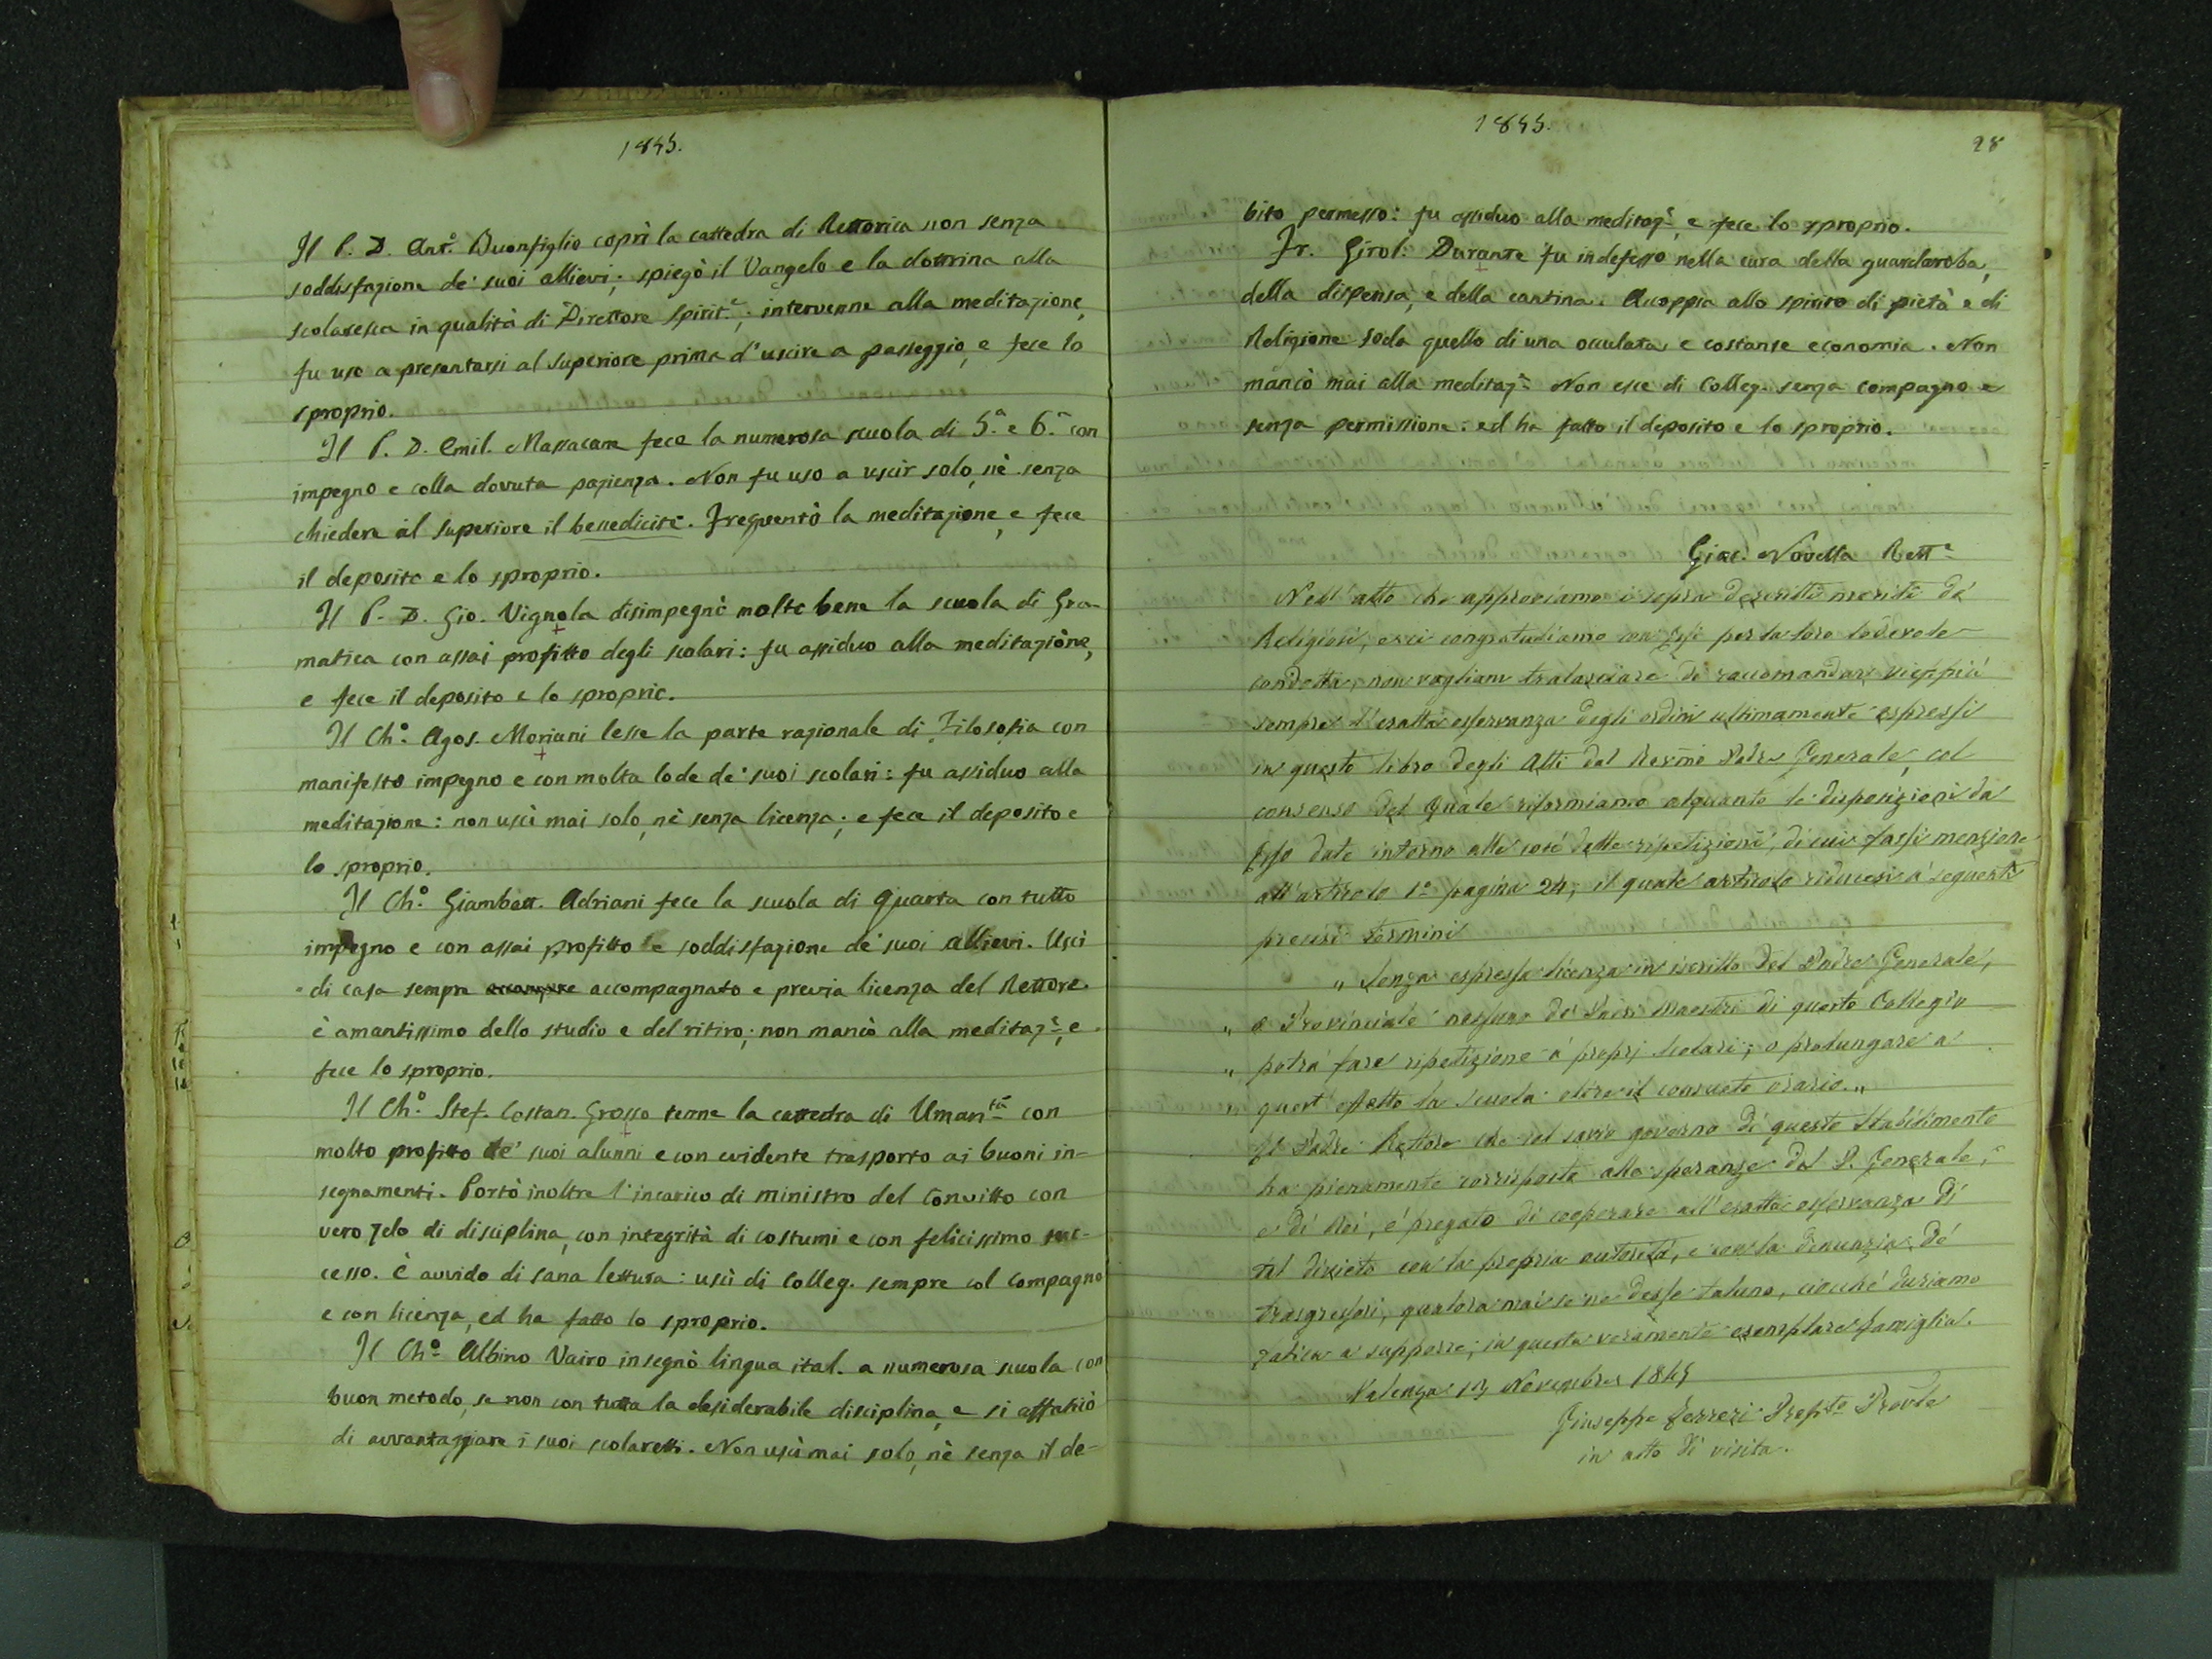 1845.
Il P. D. Ant.º Buonfiglio coprì la cattedra di Rettorica non senza
soddisfazione de' suoi allievi; spiegò il Vangelo e la dottrina alla
scolaresca in qualità di Direttore Spirit.e; intervenne alla meditazione,
fu uso a presentarsi al superiore prima d'uscire a passeggio, e fece lo
sproprio.
Il P. D. Emil. Massacane fece la numerosa scuola di 5.a e 6.a con
impegno e colla dovuta pazienza. Non fu uso a uscir solo, nè senza
chiedere al superiore il benedicite. Frequentò la meditazione, e fece
il deposito e lo sproprio.
Il P. D. Gio. Vignola disimpegnò molto bene la scuola di Gra-
matica con assai profitto degli scolari: fu assiduo alla meditazione,
e fece il deposito e lo sproprio.
Il Ch.º Agos. Moriani lesse la parte razionale di Filosofia con
manifesto impegno e con molta lode de' suoi scolari: fu assiduo alla
meditazione: non uscì mai solo, nè senza licenza; e fece il deposito e
lo sproprio.
Il Ch.º Giambatt. Adriani fece la scuola di quarta con tutto
impegno e con assai profitto e soddisfazione de' suoi allievi. Uscì
di casa sempre accompagnato e previa licenza del Rettore.
è amantissimo dello studio e del ritiro; non mancò alla meditaz.e, e
fece lo sproprio.
Il Ch.º Stef. Costan. Grosso tenne la cattedra di Uman.tà con
molto profitto de' suoi alunni e con evidente trasporto ai buoni in-
segnamenti. Portò inoltre l'incarico di ministro del Convitto con
vero zelo di disciplina, con integrità di costumi e con felicissimo suc-
cesso. è avvido di sana lettura: uscì di Colleg. sempre col compagno
e con licenza, ed ha fatto lo sproprio.
Il Ch.º Albino Vairo insegnò lingua ital. a numerosa scuola con
buon metodo, se non con tutta la desiderabile disciplina, e si affaticò
di avvantaggiare i suoi scolaretti. Non uscì mai solo, nè senza il de-
1845.
28
bito permesso: fu assiduo alla meditaz.e, e fece lo sproprio.
Fr. Girol. Durante fu indefesso nella cura della guardaroba,
della dispensa, e della cantina. Accoppia allo spirito di pietà e di
Religione soda quello di una occulata e costante economia. Non
mancò mai alla meditaz.e Non esce di Colleg. senza compagno e
senza permissione: ed ha fatto il deposito e lo sproprio.
Giac. Novella Rett.e
Nell'atto che approviamo i sopra descritti meriti de'
Religiosi, e ci congratuliamo con Essi per la loro lodevole
condotta, non vogliam tralasciare di raccomandare vieppiù
sempre l'esatta osservanza degli ordini ultimamente espressi
in questo libro degli Atti dal Rev.mo Padre Generale, col
consenso del quale riformiamo alquanto le disposizioni da
Esso date intorno alle così dette ripetizioni, di cui fassi menzione
all'articolo 1º pagina 24; il quale articolo riducesi a' seguenti
precisi termini
„ Senza espressa licenza in iscritto del Padre Generale,
„ o Provinciale nessuno de' Padri Maestri di questo Collegio
„ potrà fare ripetizione a' proprj scolari; o prolungare a
„ quest'effetto la scuola oltre il consueto orario.„
Il Padre Rettore che nel savio governo di questo Stabilimento
ha pienamente corrisposto alle speranze del P. Generale,
e di Noi, è pregato di cooperare all'esatta osservanza di
tal divieto con la propria autorità, e con la denunzia de'
trasgressori, qualora mai se ne desse taluno, ciocchè duriamo
fatica a supporre, in questa veramente esemplare famiglia.
Valenza 13 Novembre 1845
Giuseppe Ferreri Prep.to Prov.le
in atto di visita.